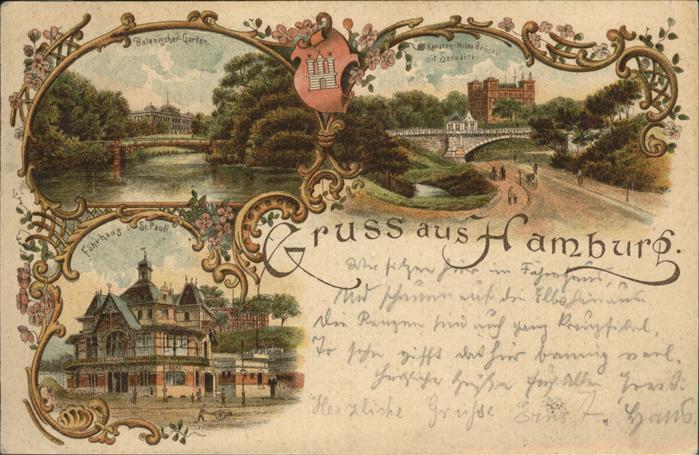 Botanischer-Garten.
Kersten-Miles Brücke
mit Seewarte.
Fährhaus St. Pauli.
Gruss aus Hamburg.
Wir sitzen hier im Fährhaus,
Und schauen auf die Elbe hinaus
Die Ranzen sind auch ganz kreuzfidel.
hier
Herzliche Grüße Euch Allen
Herzliche Grüsse Ernst. Hans